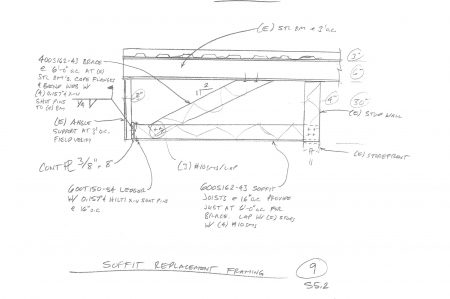 (E) STL BM @ 3' O.C.
400S162-43 BRACE
@ 6'-0" O.C. AT (E)
STL BM'S. COPE FLANGES
SHOT PINS
TO (E) BM
(E) ANGLE
SUPPORT AT 3' O.C.
FIELD VERIFY
CONT PL 3/8" x 8"
600T150-54 LEDGER
W/ 0.157"ϕ HILTI X-U SHOT PINS
@ 16" O.C.
(3) #10 SMS/LAP
600S162-43 SOFFIT
JOISTS @ 16" O.C. PROVIDE
JOIST AT 6'-0" O.C. FOR
BRACE. LAP W/ (E) STUDS
W/ (4) #10 SMS
2
11
3"
6"
30"
(E) STUD WALL
(E) STOREFRONT
SOFFIT REPLACEMENT FRAMING
9
S5.2